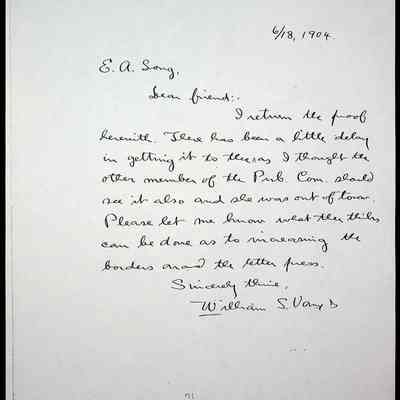 6/18, 1904.
E. A.
Dear friend:-
I return the proof
herewith. There has been a little delay
in getting it to thee as I thought the
other member of the Pub. Com. should
see it also and she was out of town.
Please let me know what thee thinks
can be done as to increasing the
borders around the letter press.
Sincerely thine,
William S.